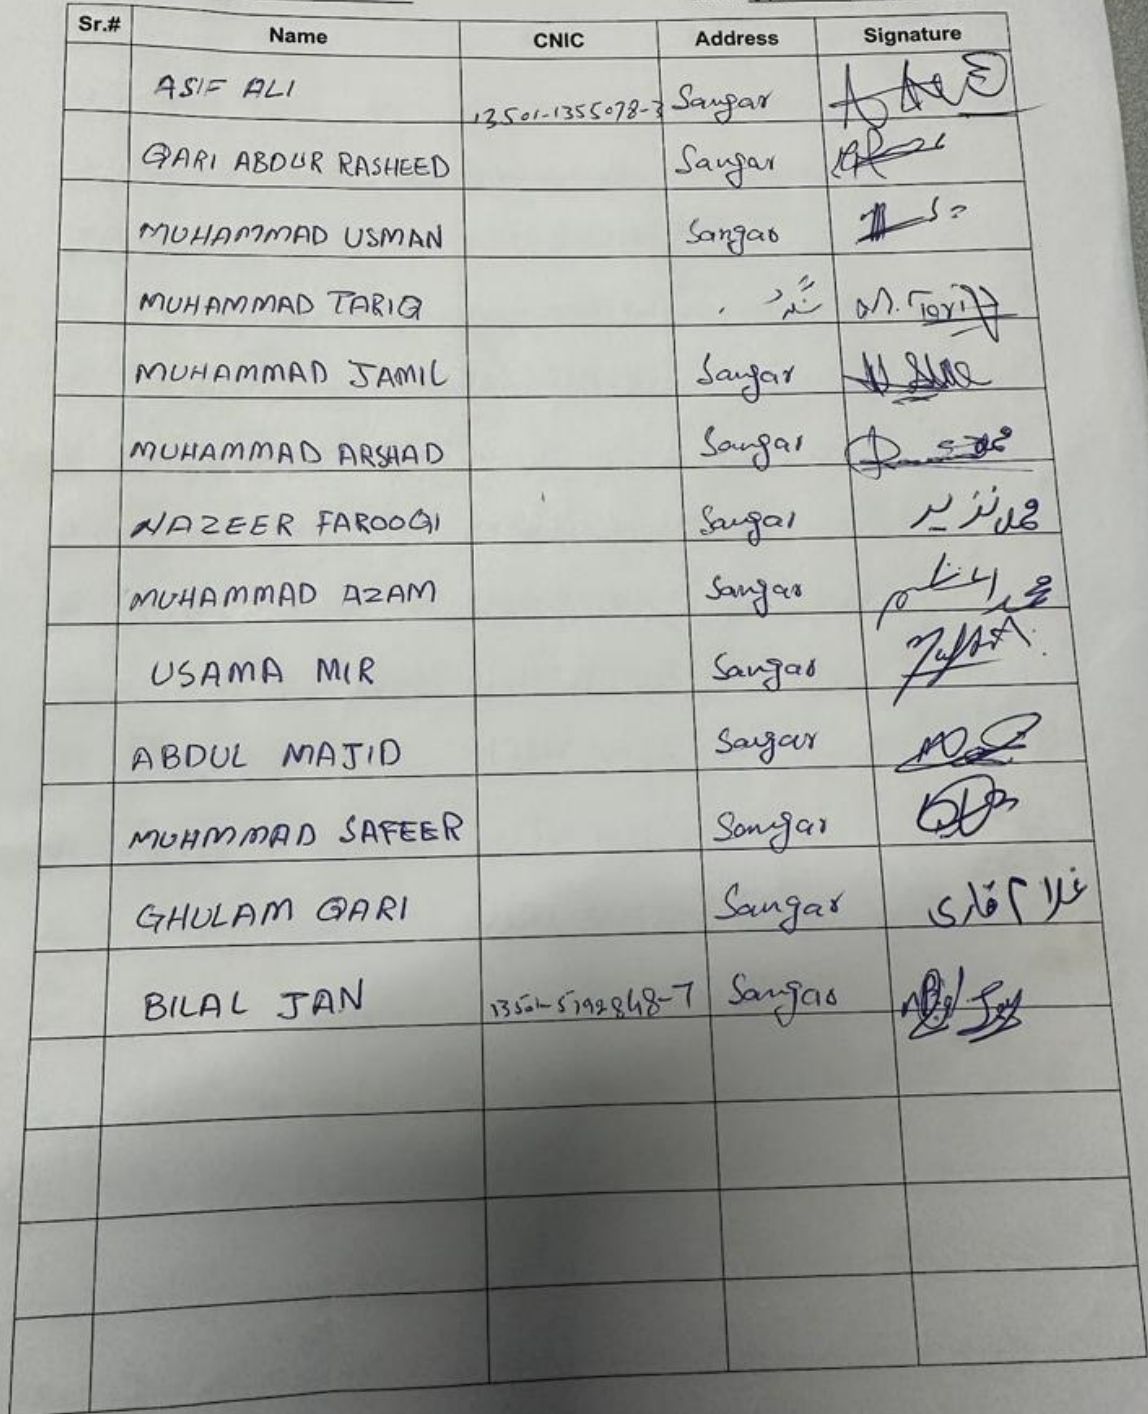 Sr.# Name CNIC Address Signature
ASIF ALI 13501-1355078-3 Sangar
QARI ABDUR RASHEED Sangar
MUHAMMAD USMAN Sangar
MUHAMMAD TARIQ M. Tariq
MUHAMMAD JAMIL Sangar
MUHAMMAD ARSHAD Sangar
NAZEER FAROOQI Sangar محمد نزیر
MUHAMMAD AZAM Sangar محمد اعظم
USAMA MIR Sangar
ABDUL MAJID Sangar
MUHMMAD SAFEER Sangar
GHULAM QARI Sangar غلام قاری
BILAL JAN 13501-5192848-7 Sangar